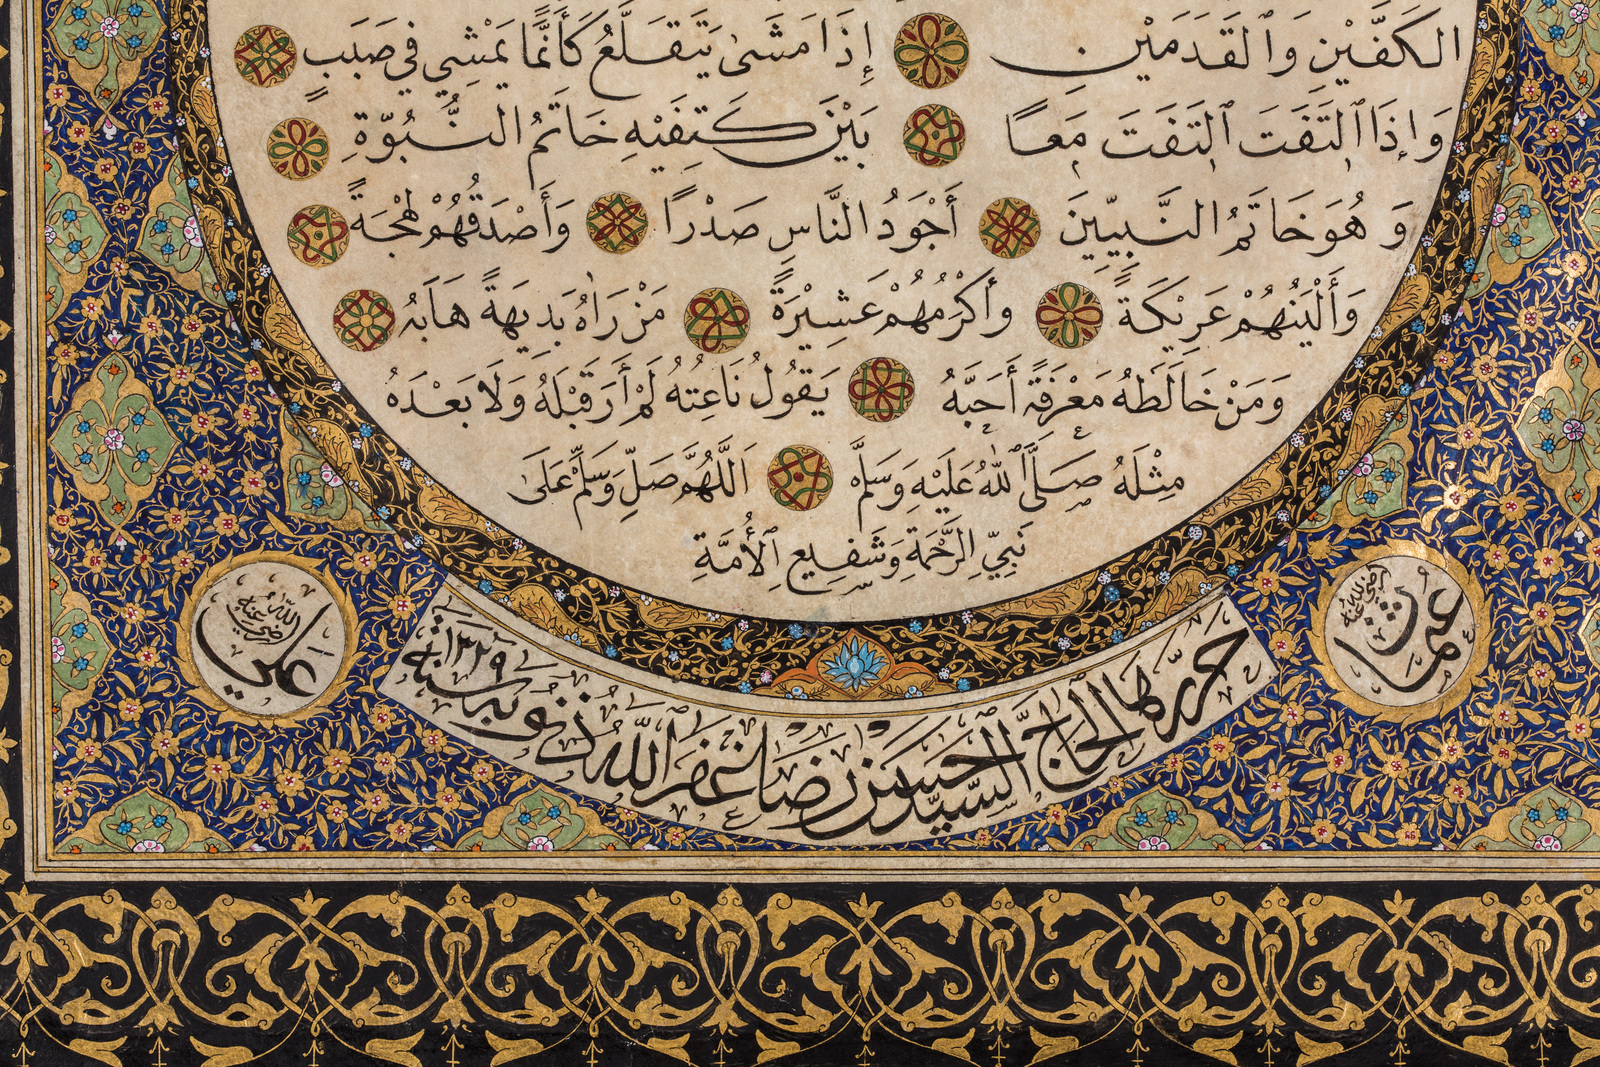 الكَفَّيْنِ وَالقَدَمَيْنِ إِذَا مَشَى يَتَقَلَّعُ كَأَنَّمَا يَمْشِي فِي صَبَبٍ
وَإِذَا الْتَفَتَ الْتَفَتَ مَعًا بَيْنَ كَتِفَيْهِ خَاتَمُ النُّبُوَّةِ
وَهُوَ خَاتَمُ النَّبِيِّينَ أَجْوَدُ النَّاسِ صَدْرًا وَأَصْدَقُهُمْ لَهْجَةً
وَأَلْيَنُهُمْ عَرِيْكَةً وَأَكْرَمُهُمْ عَشِيْرَةً مَنْ رَاٰهُ بَدِيهَةً هَابَهُ
وَمَنْ خَالَطَهُ مَعْرِفَةً أَحَبَّهُ يَقُولُ نَاعِتُهُ لَمْ أَرَ قَبْلَهُ وَلَا بَعْدَهُ
مِثْلَهُ صَلَّى اللهُ عَلَيْهِ وَسَلَّمَ اَللّٰهُمَّ صَلِّ وَسَلِّمْ عَلَى
نَبِيِّ الرَّحْمَةِ وَشَفِيعِ الْأُمَّةِ
عثمان رضي الله عنه
علي رضي الله عنه
حرّرها الحاج السيّد حسن رضا غفر الله ذنوبه سنة ١٣٢٩